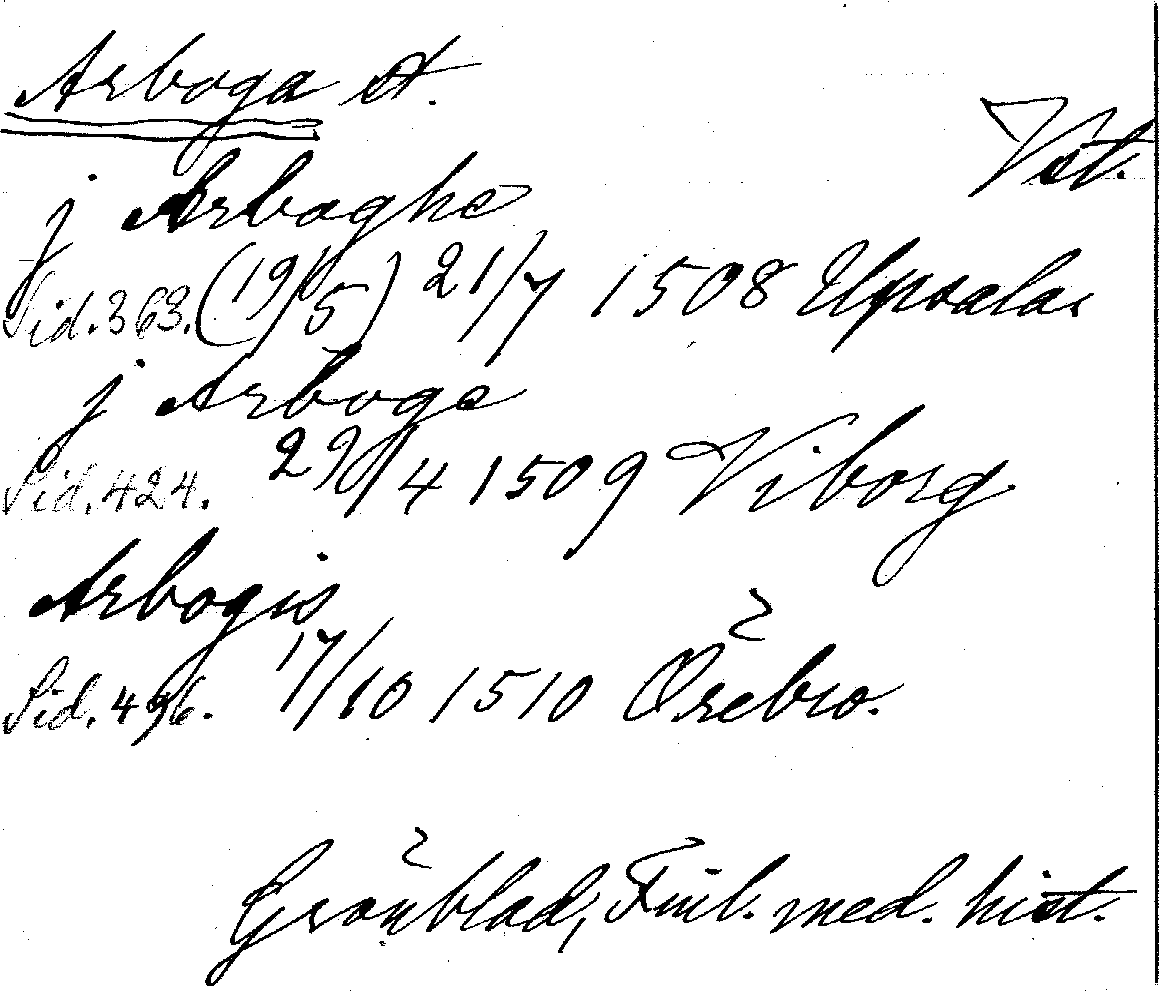 Arboga st.
Vst.
j Arboghe
Sid. 363. (19/5) 21/7 1508 Upsala
j Arboge
Sid. 424. 29/4 1509 Viborg
Arbogis
Sid. 496. 17/10 1510 Örebro.
Grönblad, Finl. med. hist.